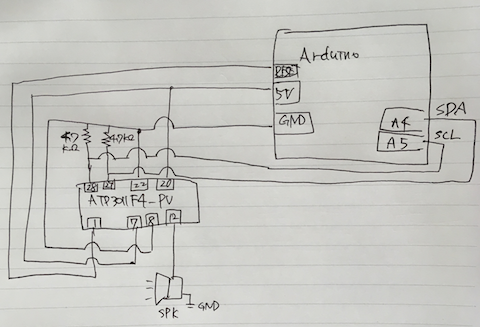 Arduino
5V
GND
A4
SDA
A5
SCL
4.7
kΩ
4.7kΩ
28
27
22
20
ATP3011F4-PU
1
7
8
12
SPK
GND